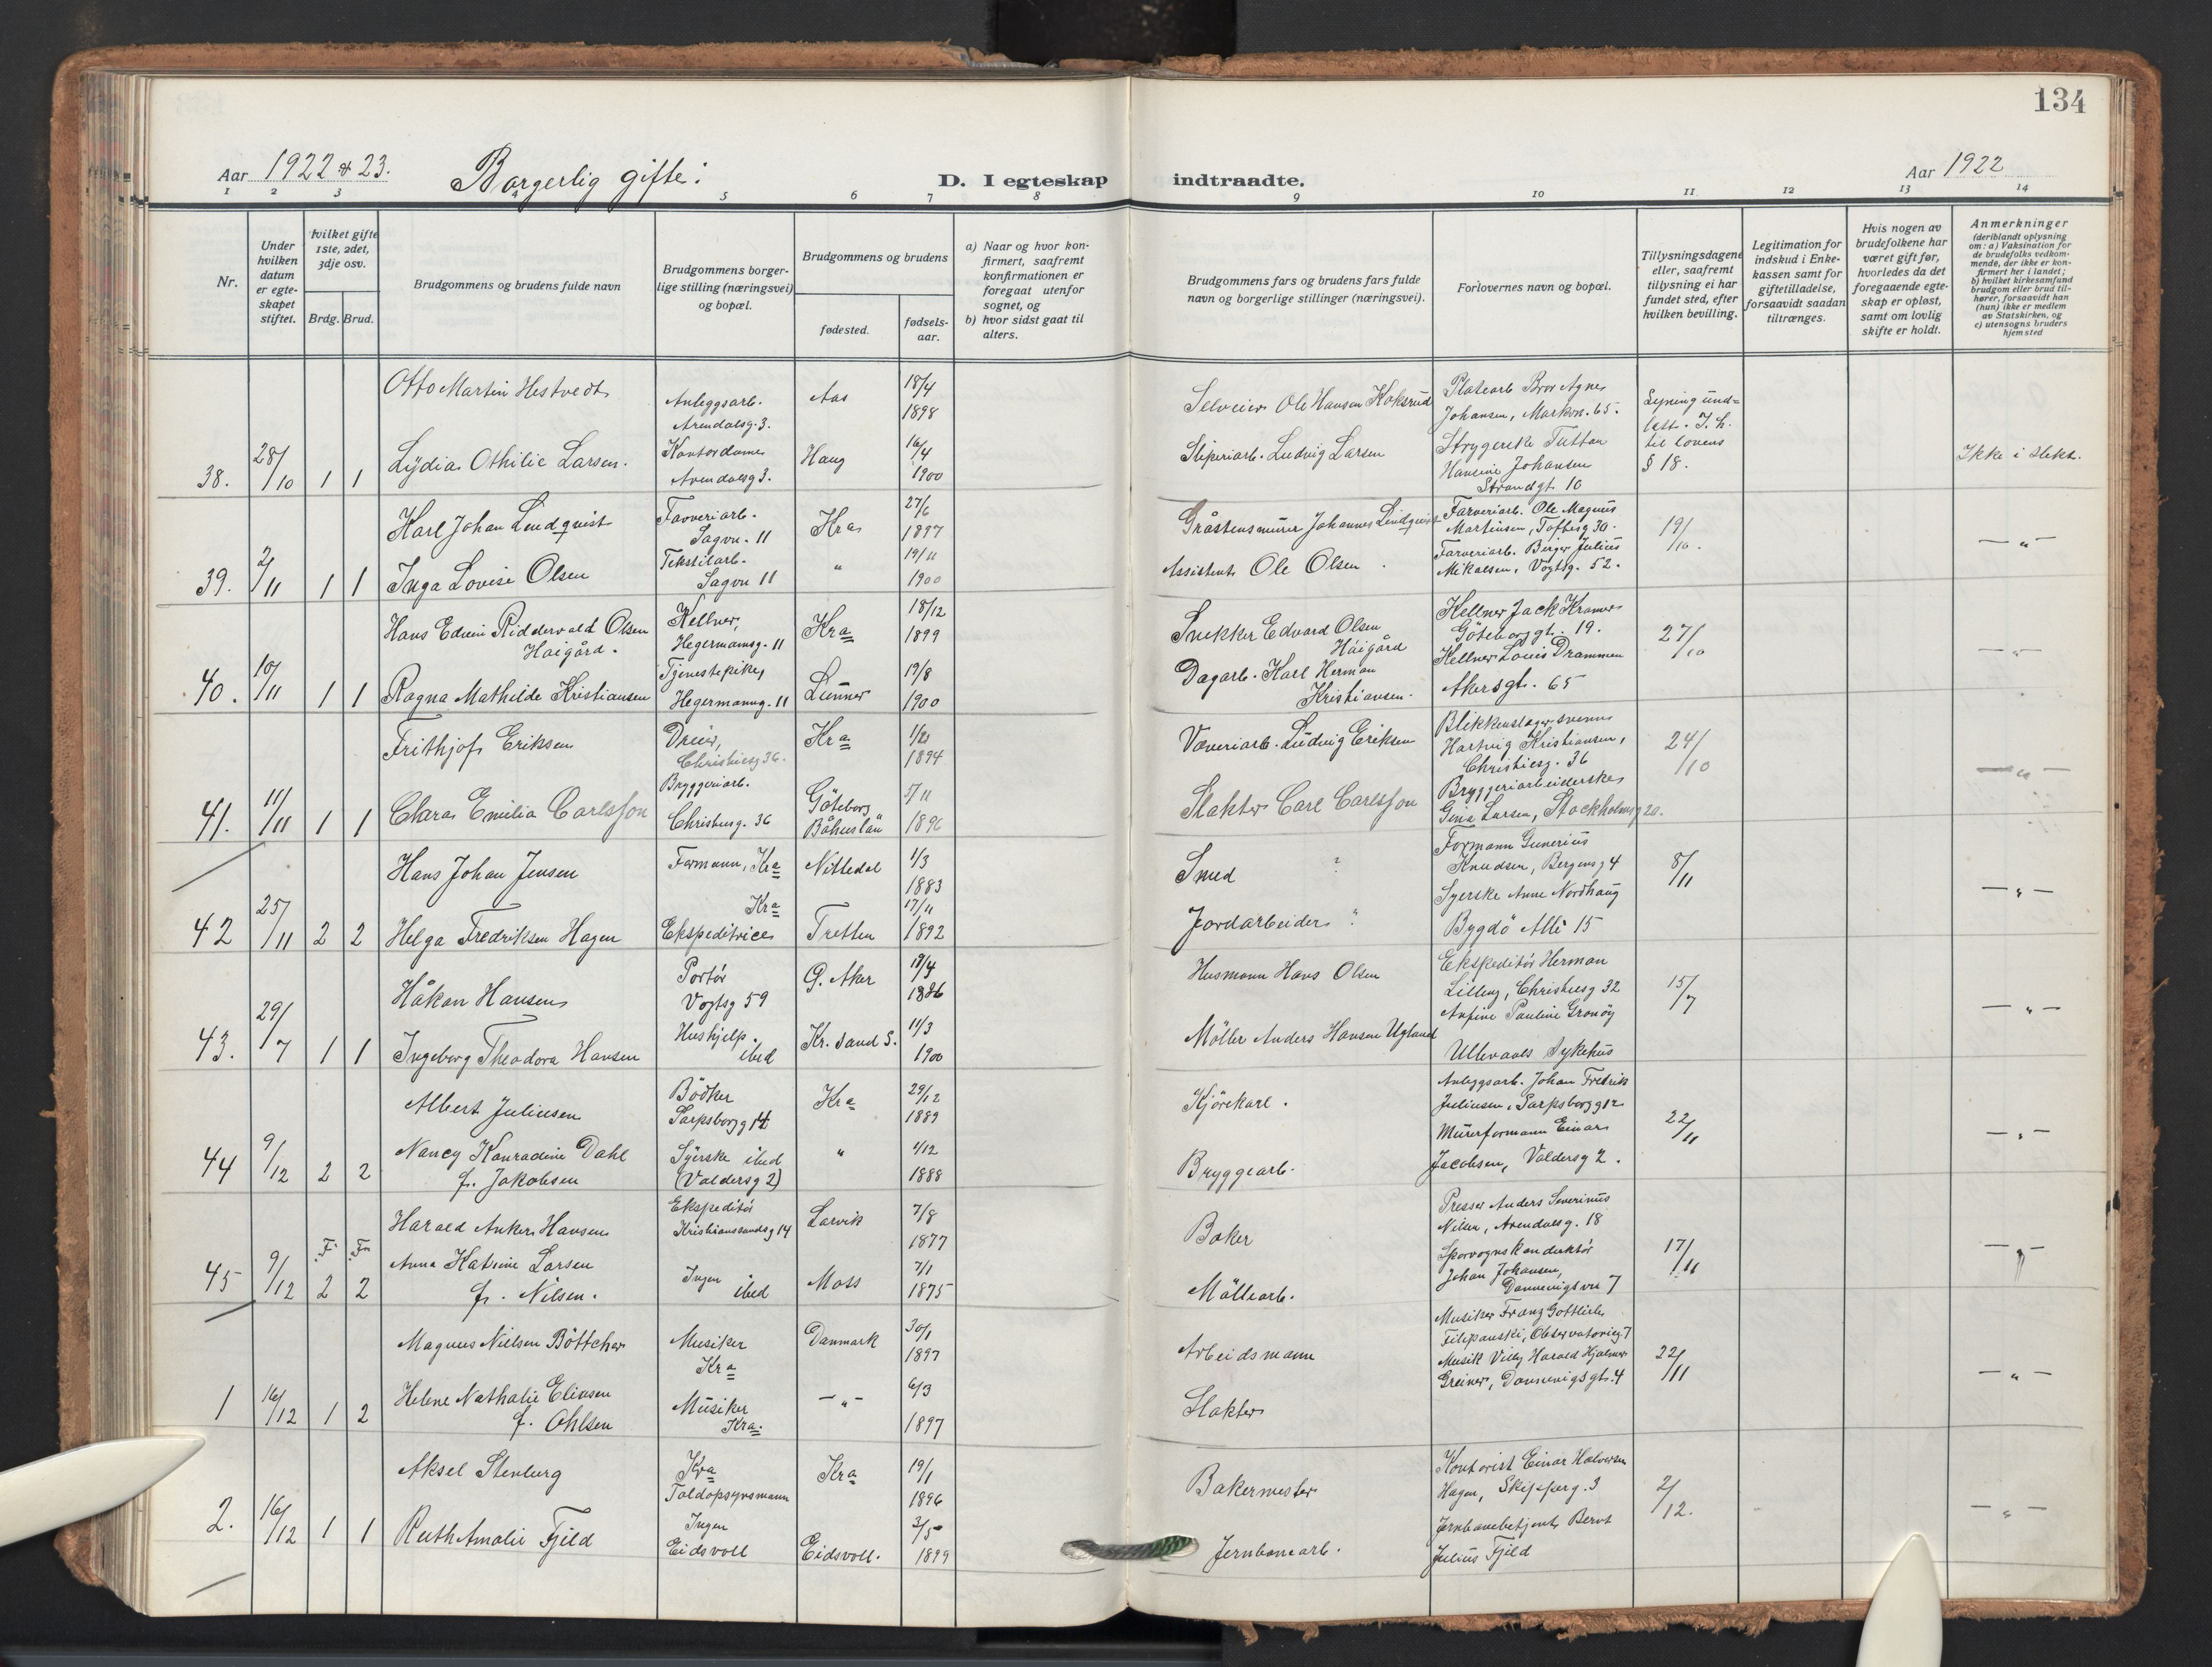 134
Aar 1922 & 23. Borgerlig gifte: D. I egteskap indtraadte. Aar 1922
1 2 3 4 5 6 7 8 9 10 11 12 13 14
Nr.
Under hvilken datum er egteskapet stiftet.
Hvilket gifte 1ste, 2det, 3dje osv.
Brdg. Brud.
Brudgommens og brudens fulde navn
Brudgommens borgerlige stilling (næringsvei) og bopæl.
Brudgommens og brudens
fødested.
fødselsaar.
a) Naar og hvor konfirmert, saafremt konfirmationen er foregaat utenfor sognet, og
b) hvor sidst gaat til alters.
Brudgommens fars og brudens fars fulde navn og borgerlige stillinger (næringsvei).
Forlovernes navn og bopæl.
Tillysningsdagene eller, saafremt tillysning ei har fundet sted, efter hvilken bevilling.
Legitimation for indskud i Enkekassen samt for giftetilladelse, forsaavidt saadan tiltrænges.
Hvis nogen av brudefolkene har været gift før, hvorledes da det foregaaende egteskap er opløst, samt om lovlig skifte er holdt.
Anmerkninger
(deriblandt oplysning om: a) Vaksination for de brudefolks vedkommende, der ikke er konfirmert her i landet; b) hvilket kirkesamfund brudgom eller brud tilhører, forsaavidt han (hun) ikke er medlem av Statskirken, og c) utensogns bruders hjemsted
Otto Martin Hestvedt Anleggsarb. Arendalsg. 3. Aas 18/4 1898
38. 28/10 1 1 Lydia Othilie Larsen. Kontordame Arendalsg 3. Haug 16/4 1900
Selveier Ole Hansen Koksrud
Sliperiarb. Ludvig Larsen
Platearb Bror Agner
Johansen, Markvn. 65.
Strygerske Tuttan
Hansine Johansen
Strandgt. 10
Lysning und=
til lovens
§ 18.
Ikke i slekt.
Karl Johan Lindqvist Farveriarb. Sagvn. 11 Kra 27/6 1897
39. 2/11 1 1 Inga Lovise Olsen Tekstilarb. Sagvn 11 " 19/11 1900
Gråstensmurer Johannes Lindqvist
Assistent Ole Olsen
Farveriarb. Ole Magnus
Martinsen, Toftesg 30.
Farveriarb. Birger Julius
Mikalsen, Vogtsg. 52.
19/10.
— " —
Hans Edvin Riddervold Olsen
Haigård.
Kellner, Hegermannsg. 11 Kra 18/12 1899
40. 10/11 1 1 Ragna Mathilde Kristiansen Tjenestepike, Hegermanng. 11 Lunner 19/8 1900
Snekker Edvard Olsen
Háigård
Dagarb. Karl Herman
Kristiansen.
Kellner Jack Kramer
Göteborggt. 19.
Kellner Louis Drammen
Akersgt. 65
27/10
— " —
Frithjof Eriksen Dreier, Christiesg 36. Kra 1894
41. 11/11 1 1 Clara Emilia Carlsson Bryggeriarb. Christiesg. 36 Göteborg Båhuslän 5/11 1896
Væveriarb. Ludvig Eriksen
Slakter Carl Carlsson
Blikkenslagersvenn
Hartvig Kristiansen,
Christiesg. 36
Bryggeriarbeiderske
Gina Larsen, Stockholmsg 20.
24/10
— " —
Hans Johan Jensen Formann, Kra Nittedal 1/3 1883
42 25/11 2 2 Helga Fredriksen Hagen Kra Ekspeditrice Tretten 17/11 1892
Smed ?
Jordarbeider ?
Formann Gunerius
Knudsen, Bergensg 4
Syerske Anne Nordhaug
Bygdö Allé 15
8/11
— " —
Håkon Hansen Portör Vogtsg 59 G. Aker 19/4 1886
43. 29/7 1 1 Ingeborg Theodora Hansen Hushjelp. ibid Kr. sand S. 11/3 1900
Husmann Hans Olsen
Möller Anders Hansen Ugland
Ekspeditör Herman
Lilleng, Christiesg 32
Anfine Pauline Gronöy
Ullevaals Sykehus
15/7
— " —
Albert Juliusen Bödker Sarpsborgg 14 Kra 29/12 1889
44 9/12 2 2 Nancy Konradine Dahl
f. Jakobsen
Syerske ibid (Valdersg 2) " 4/12 1888
Kjörekarl.
Bryggearb.
Anleggsarb. Johan Fredrik
Juliusen, Sarpsborgg 12
Murerformann Einar
Jacobsen, Valdersg 2.
22/11
— " —
Harald Anker Hansen Ekspeditör Kristianssandsg 14 Larvik 7/8 1877
45 9/12 F. 2 Fr. 2 Anna Katrine Larsen
f. Nilsen.
Ingen ibid Moss 7/1 1875
Baker
Möllearb.
Presser Anders Severinus
Nilsen, Arendalsg. 18
Sporvognskonduktör
Johan Johansen,
Dannevigsvn 7
17/11
— " —
Magnus Nielsen Böttcher Musiker Kra Danmark 30/1 1897
1 16/12 1 2 Helene Nathalie Eliasen
f. Ohlsen
Musiker Kra. — " — 6/3 1897
Arbeidsmann
Slakter
Musiker Franz Gottlieb
Filipanski, Observatorieg. 7
Musik Villy Harald Hjalmar
Greiner, Dannevigsgt. 4
22/11
— " —
Aksel Stenberg Kra Toldopsynsmann Kra 19/1 1896
2. 16/12 1 1 Ruth Amalie Fjeld Ingen Eidsvoll Eidsvoll. 3/5 1899
Bakermester
Jernbanearb.
Kontorist Einar Halvorsen
Hagen, Skipperg. 3
Jernbanebetjent Bernt
Julius Fjeld
2/12.
— " —